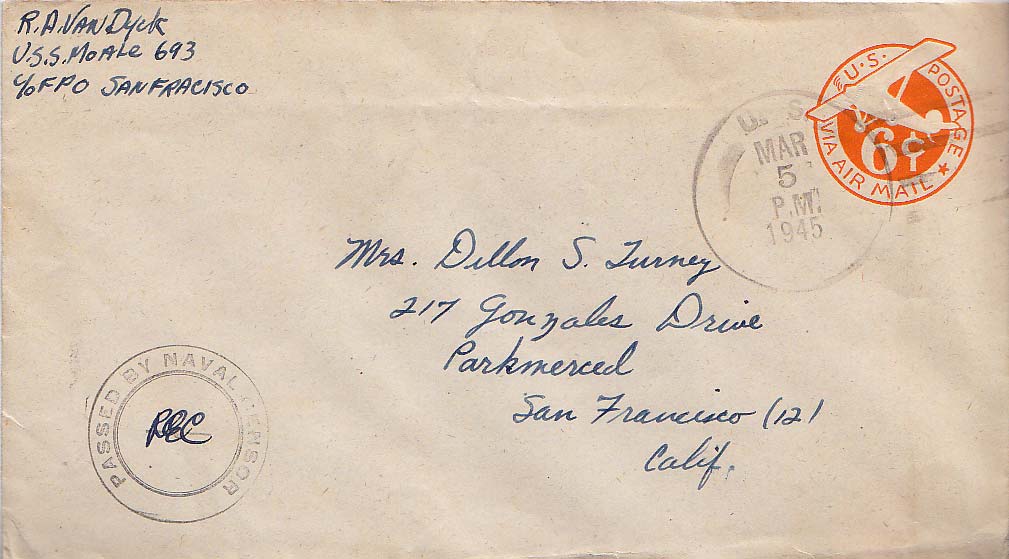 R.A. VAN Dyck
U.S.S. MOALE 693
c/o FPO SAN FRACISCO
U.S. POSTAGE
6¢
VIA AIR MAIL
U. S.
MAR
5
P.M.
1945
Mrs. Dillon S. Turney
217 Gonzales Drive
Parkmerced
San Francisco (12)
Calif.
PASSED BY NAVAL CENSOR